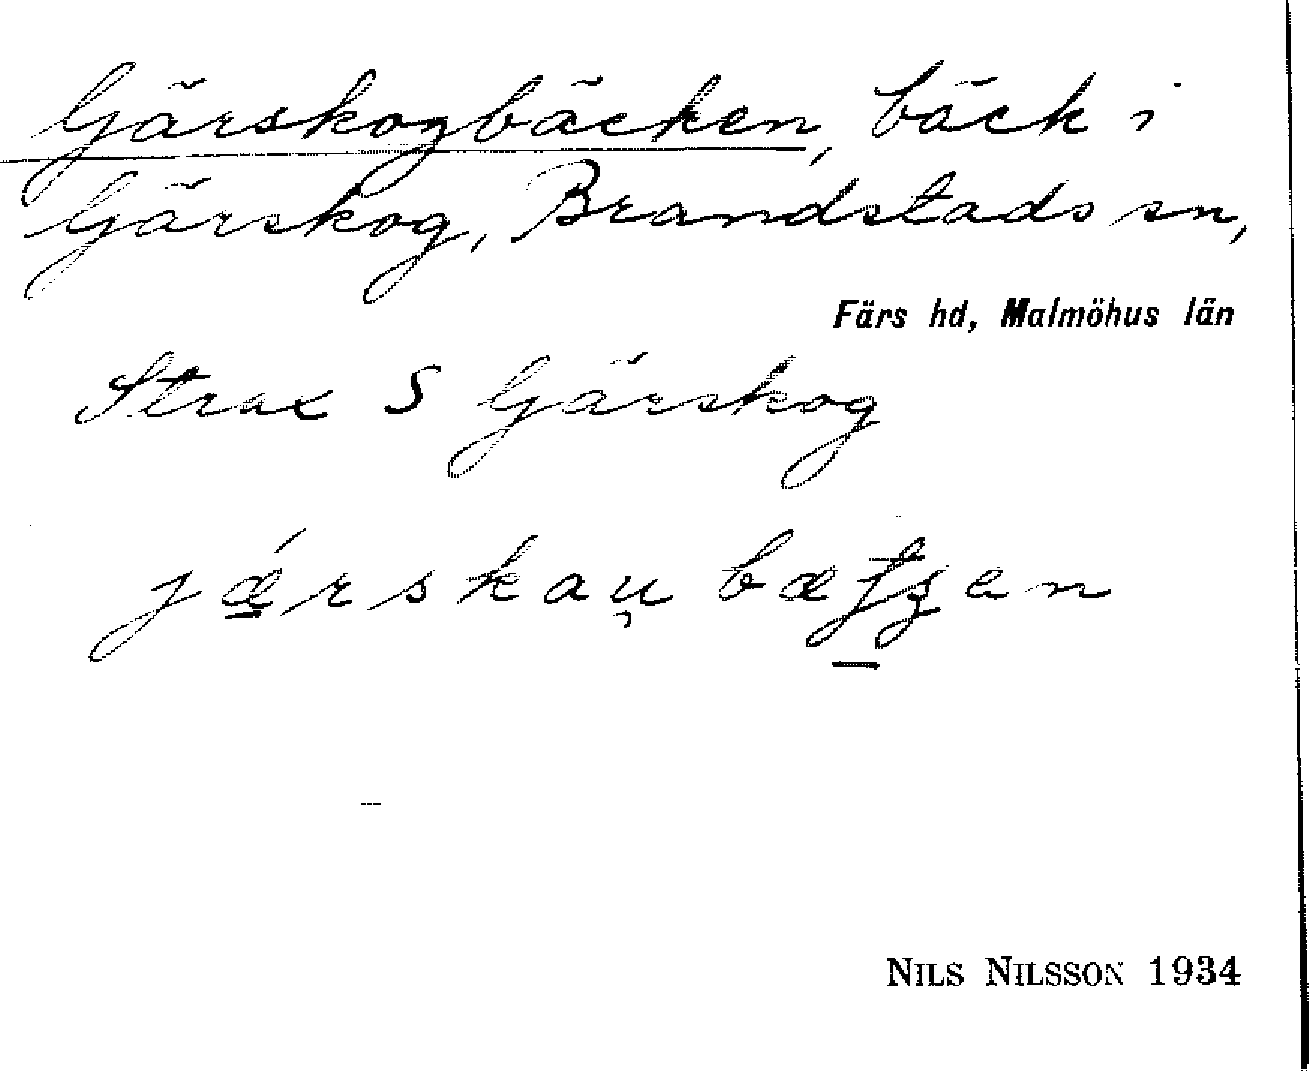 Gärskogbäcken, bäck i
Gärskog, Brandstads sn,
Färs hd, Malmöhus län
Strax S Gärskog
NILS NILSSON 1934